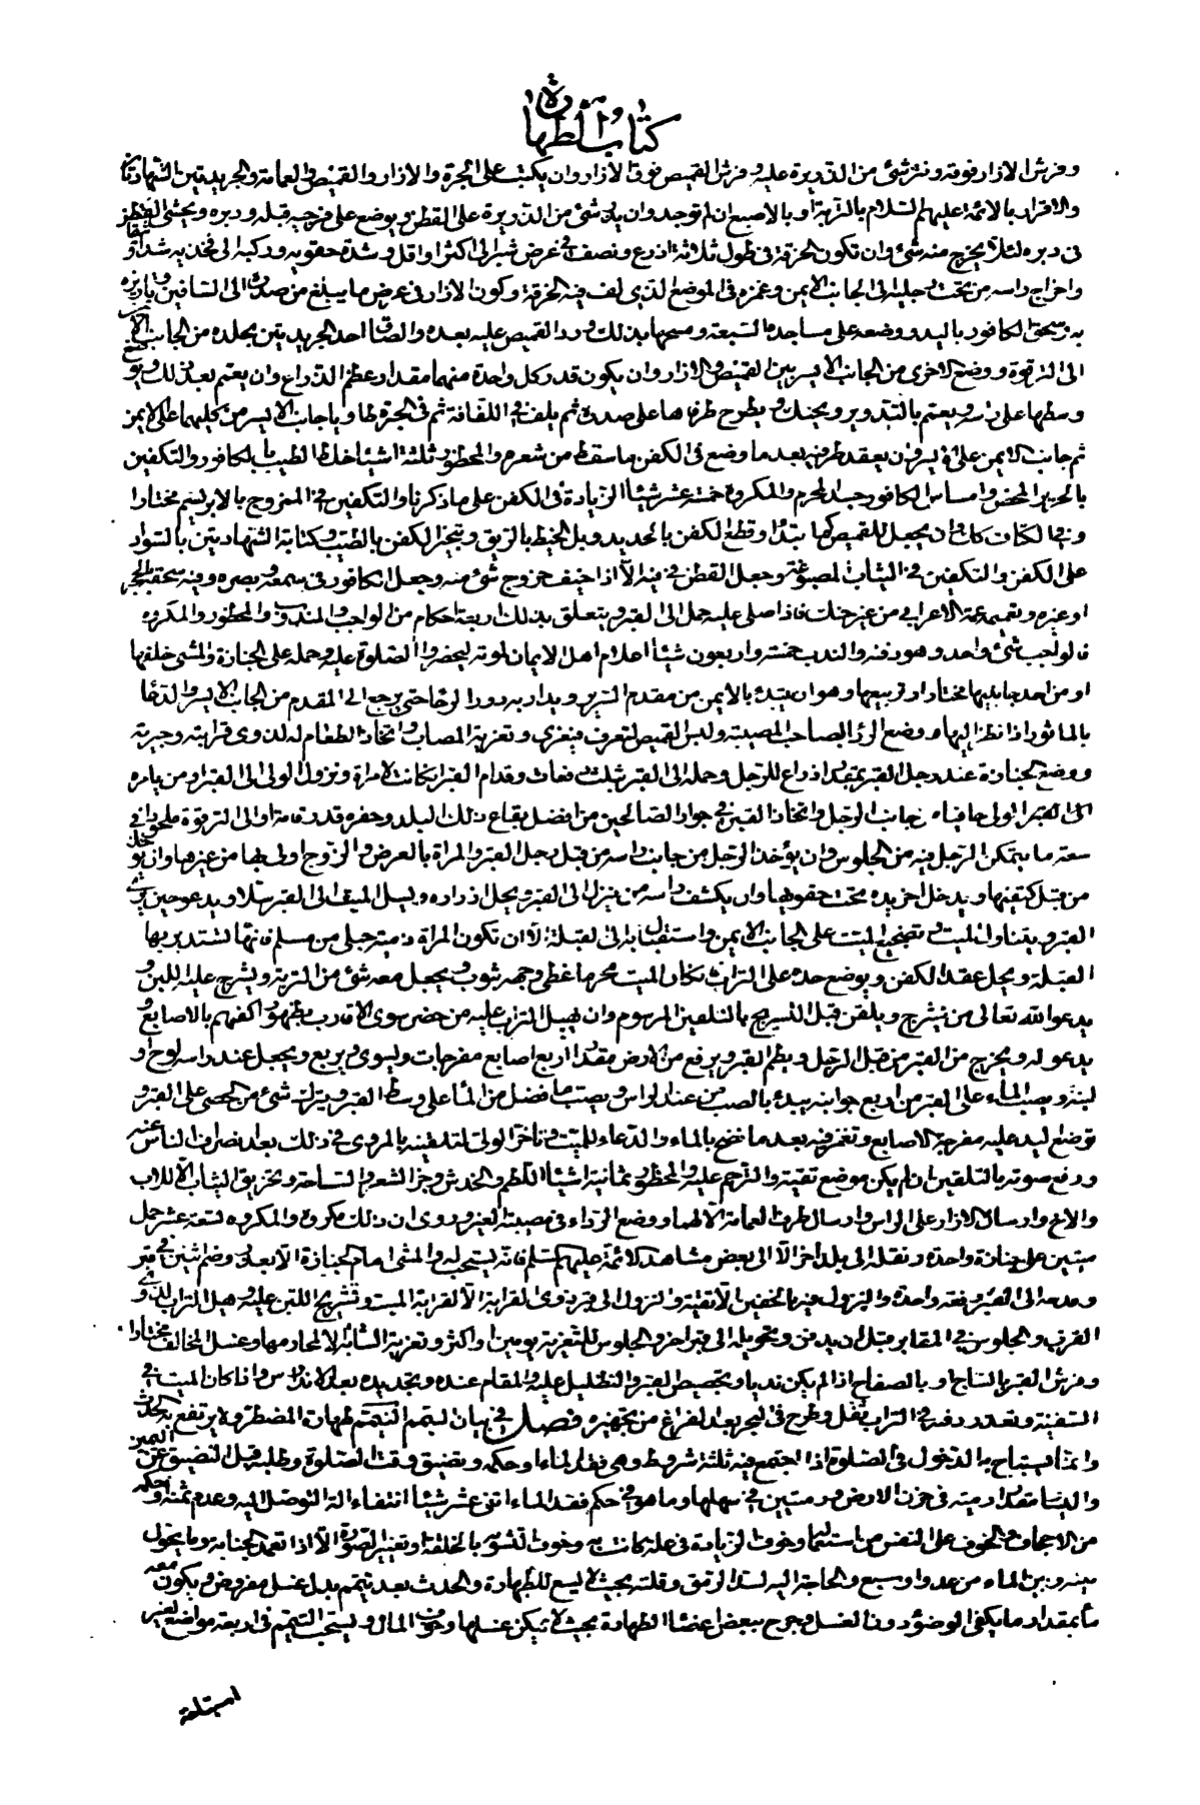 كتاب الطهارة
وفرش الازار فوقه ونثر شئ من الذريرة عليه وفرش القميص فوق الازار وان يكتب على الحبرة والازار والقميص والعمامة والجريدتين الشهادتان
والاقرار بالائمة عليهم السلام بالتربة او بالاصبع ان لم توجد وان يلقى شئ من الذريرة على القطن ويوضع على فرجيه قبله ودبره ويحشى القطن
فى دبره لئلا يخرج منه شئ وان تكون الخرقة فى طول ثلاثة اذرع ونصف فى عرض شبر الى اكثر او اقل وشدة حقويه وركبه الى فخذيه شدا
واخراج راسه من تحت رجليه الى الجانب الايمن وغمزه فى الموضع الذى لف فيه الخرقة وكون الازار فى عرض ما يبلغ من صدره الى الساقين
به وسحق الكافور باليد ووضعه على مساجده السبعة ومسحها بذلك ورد القميص عليه بعده والصاق احد الجريدتين بجلده من الجانب
الى الترقوة ووضع الاخرى من الجانب الايسر بين القميص والازار وان يكون قدر كل واحدة منهما مقدار عظم الذراع وان يعمم بعد ذلك
وسطها على راسه ويعمم بالتدوير ويحنك ويطرح طرفاها على صدره ثم يلف فى اللفافة ثم فى الحبرة طاويا جانب الايسر من كليهما على الايمن
ثم جانب الايمن على الايسر وان يعقد طرفيه بعد ما وضع فى الكفن ما سقط من شعره والمحظور ثلثة اشياء خلط الطيب بالكافور والتكفين
بالحرير المحض وامساس الكافور جسد المحرم والمكروه خمسة عشر شيئا الزيادة فى الكفن على ما ذكرنا والتكفين فى الممزوج بالابريسم مختارا
وفى الكتان كان وان يجعل للقميص كما مبتدأ وقطع الكفن بالحديد وبل الخيط بالريق وتبخير الكفن بالطيب وكتابة الشهادتين بالسواد
على الكفن والتكفين فى الثياب المصبوغة وجعل القطن فى فيه الا اذا خيف خروج شئ منه وجعل الكافور فى سمعه وبصره وفيه وسحقه بالحجر
او غيره وتعميمه عمة الاعرابى من غير حنك فاذا صلى عليه حمل الى القبر ويتعلق بذلك اربعة احكام من الواجب والمندوب والمحظور والمكروه
فالواجب شئ واحد وهو دفنه والندب خمسة واربعون شيئا اعلام اهل الايمان لموته ليحضروا الصلوة عليه وحمله على الجنازة والمشى خلفها
او من احد جانبيها مختارا وتربيعها وهو ان يبتدئ بالايمن من مقدم السرير ويدار به دور الرحا حتى يرجع الى المقدم من الجانب الايسر والدعاء
بالماثور اذا نظر اليها ووضع الرداء لصاحب المصيبة ولبس القميص لتعرف فيعزى وتعزية المصاب واتخاذ الطعام له لذوى قرابته وجيرته
ووضع الجنازة عند رجل القبر بمقدار اذراع للرجل وحمله الى القبر بثلث دفعات وقدام القبر ان كانت الامراة ونزول الولى الى القبر او من يامره
الولى حافيا من جانب الرجل واتخاذ القبر فى جوار الصالحين من افضل بقاع ذلك البلد وحفره قدر قامة او الى الترقوة
سعته ما يتمكن الرجل فيه من الجلوس وان يؤخذ الرجل من جانب راسه من قبل رجل القبر والمراة بالعرض والزوج اولى بها من غيره
من قبل كتفيها ويدخل اخر يده تحت حقويها وان يكشف راسه من ينزل الى القبر ويحل ازراره ويسل الميت الى القبر سلا ويدعو حين يرى
القبر ويتناول الميت وتضجيع الميت على الجانب الايمن واستقبال به الى القبلة الا ان تكون المراة ذمية حبلى من مسلم فانها تستدبر بها
القبلة ويحل عقد الكفن ويوضع خده على التراب وان كان الميت محرما غطى وجهه بثوب ويجعل معه شئ من التربة ويشرج عليه اللبن
يدعو الله تعالى من يشرج ويلقن قبل التشريج بالتلقين المرسوم وان يهيل التراب عليه من حضر سوى الاقارب بظهور اكفهم بالاصابع
يدعو له ويخرج من القبر من قبل الرجل ويطم القبر ويرفع من الارض مقدار اربع اصابع مفرجات ويسوى ويربع ويجعل عند راسه لوح او
لبنة ويصب الماء على القبر من اربع جوانبه يبدء بالصب من عند الراس ويصب ما فضل من الماء على وسط القبر ويترك شئ من الحصى على القبر
توضع اليد عليه مفرجة الاصابع وتغمز فيه بعد ما نضح بالماء والدعاء للميت وتاخر الولى لتلقينه بالمروى فى ذلك بعد انصراف الناس عنه
ورفع صوته بالتلقين ان لم يكن موضع تقية والترحم عليه والمحظور ثمانية اشياء اللطم والخدش وجز الشعر والنياحة وتخريق الثياب الا للاب
والاخ وارسال الازار على الراس وارسال طرف العمامة الا لهما ووضع الرداء فى مصيبة الغير وروى ان ذلك مكروه والمكروه تسعة عشر حمل
ميتين على جنازة واحدة ونقله الى بلد اخر الا الى بعض مشاهد الائمة عليهم السلم فانه يستحب له والمشى امام الجنازة الا بعذر وضم اثنين فى قبر
وحمله الى القبر دفعة واحدة والنزول فيه بالخفين الا تقية والنزول الى قبر ذوى القرابة الا لقرابة الميت وتشريج اللبن عليه وهيل التراب لذوى
القربى والجلوس فى المقابر قبل ان يدفن وتحويله الى قبر اخر والجلوس للتعزية يومين او اكثر وتعزية الشابة الا لمحارمها وغسل المخالف مختارا
وفرش القبر بالساج او بالصفاح اذا لم يكن نديا وتجصيص القبر والتظليل عليه والمقام عنده وتجديده بعد الاندراس واذا كان الميت فى
السفينة وتعذر دفنه فى التراب ثقل وطرح فى البحر بعد الفراغ من تجهيزه فصل فى بيان التيمم التيمم طهارة المضطر ولا يرتفع به الحدث
وانما يستباح به الدخول فى الصلوة اذا اجتمع فيه ثلثة شروط وهى فقد الماء او حكمه وتضيق وقت الصلوة وطلبه قبل التضيق عن اليمين
واليسار مقدار رمية فى حزن الارض ورميتين فى سهلها وما هو فى حكم فقد الماء اثنى عشر شيئا انتفاء الة التوصل اليه وعدم ثمنه او حكمه
من الاجحاف والخوف على النفس من استعماله وخوف الزيادة فى علة كانت به وخوف تشويه بالخلقة او تغيير الصورة الا اذا تعمد الجنابة وما يحول
بينه وبين الماء من عدو او سبع والحاجة اليه لسد الرمق وقلته بحيث لا يسع للطهارة والحدث بعد تيمم بدل غسل مفروض ويكون معه
ماء بمقدار ما يكفى الوضوء دون الغسل وجرح ببعض اعضاء الطهارة بحيث لا يمكن غسلها وخوف المال ويستحب التيمم فى اربعة مواضع لغير